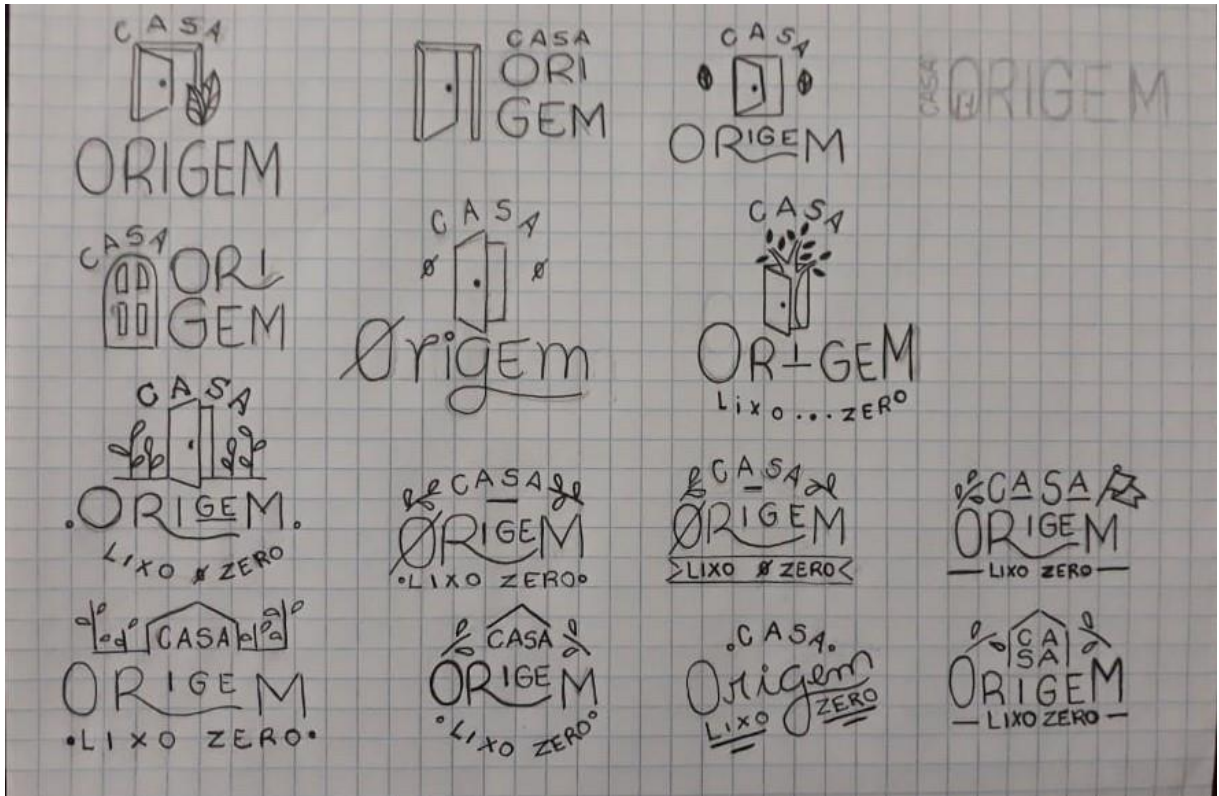 CASA
ORIGEM
CASA
ORI
GEM
CASA
ORIGEM
CASA
ORIGEM
CASA
ORI
GEM
CASA
Ørigem
CASA
ORIGEM
Lixo...ZERO
CASA
.ORIGEM.
LIXO Ø ZERO
CASA
ØRIGEM
•LIXO ZERO•
CASA
ØRIGEM
>LIXO Ø ZERO<
CASA
ORIGEM
— LIXO ZERO —
CASA
ORIGEM
•LIXO ZERO•
CASA
ORIGEM
°LIXO ZERO°
.CASA.
Origem
LIXO ZERO
CA
SA
ORIGEM
— LIXO ZERO —